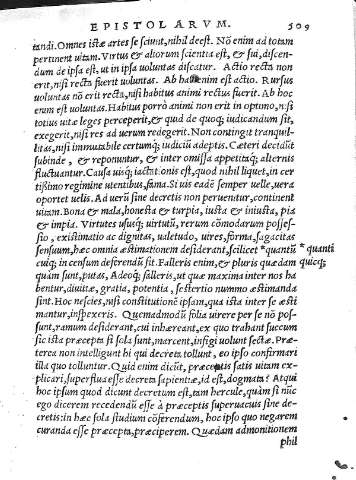 EPISTOLARVM. 509
tandi. Omnes istæ artes se sciunt, nihil deest. Nõ enim ad totam
pertinent uitam. Virtus & aliorum scientia est, & sui, discen-
dum de ipsa est, ut in ipsa uoluntas discatur. Actio recta non
erit, nisi recta fuerit uoluntas. Ab hac enim est actio. Rursus
uoluntas nõ erit recta, nisi habitus animi rectus fuerit. Ab hoc
enim est uoluntas. Habitus porrò animi non erit in optimo, nisi
totius uitæ leges perceperit, & quid de quoq; iudicandum sit,
exegerit, nisi res ad uerum redegerit. Non contingit tranquil-
litas, nisi immutabile certumq; iudiciũ adeptis. Cæteri decidũt
subinde, & reponuntur, & inter omissa appetitaq; alternis
fluctuantur. Causa uisq; iactationis est, quod nihil liquet, in cer
tißimo regimine utentibus, fama. Si uis eadẽ semper uelle, uera
oportet uelis. Ad uerũ sine decretis non peruenitur, continent
uitam. Bona & mala, honesta & turpia, iusta & iniusta, pia
& impia. Virtutes ususq; uirtutũ, rerum cõmodarum posses-
sio, existimatio ac dignitas, ualetudo, uires, forma, sagacitas
sensuum, hæc omnia æstimationem desiderant, scilicet * quantũ * quanti
cuiq; in censum deferendũ sit. Falleris enim, & pluris quædam quicq;
quàm sunt, putas, Adeoq; falleris, ut quæ maxima inter nos ha
bentur, diuitiæ, gratia, potentia, sestertio nummo æstimanda
sint. Hoc nescies, nisi constitutionẽ ipsam, qua ista inter se æsti
mantur, inspexeris. Quemadmodũ folia uirere per se nõ pos-
sunt, ramum desiderant, cui inhæreant, ex quo trahant succum
sic ista præcepta si sola sunt, marcent, infigi uolunt sectæ. Præ-
terea non intelligunt hi qui decreta tollunt, eo ipso confirmari
illa quo tolluntur. Quid enim dicũt, præceptis satis uitam ex-
plicari, superflua esse decreta sapientiæ, id est, dogmata? Atqui
hoc ipsum quod dicunt decretum est, tam hercule, quàm si nũc
ego dicerem recedendũ esse à præceptis superuacuis sine de-
cretis: in hæc sola studium cõferendum, hoc ipso quo negarem
curanda esse præcepta, præciperem. Quædam admonitionem
phil